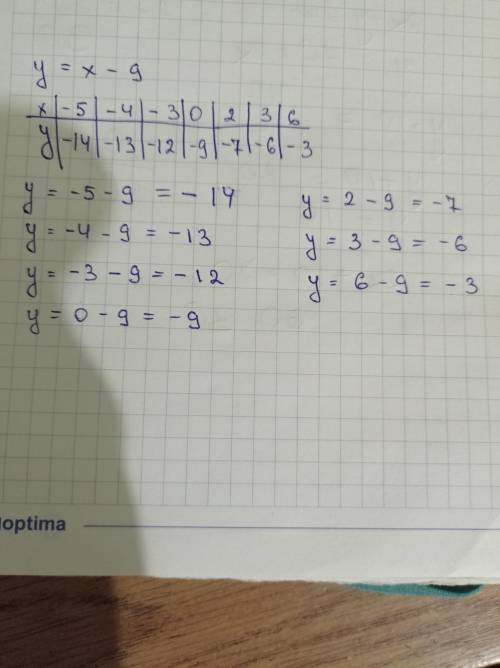 y = x - 9
x | -5 | -4 | -3 | 0 | 2 | 3 | 6
y | -14 | -13 | -12 | -9 | -7 | -6 | -3
y = -5 - 9 = -14
y = -4 - 9 = -13
y = -3 - 9 = -12
y = 0 - 9 = -9
y = 2 - 9 = -7
y = 3 - 9 = -6
y = 6 - 9 = -3
optima